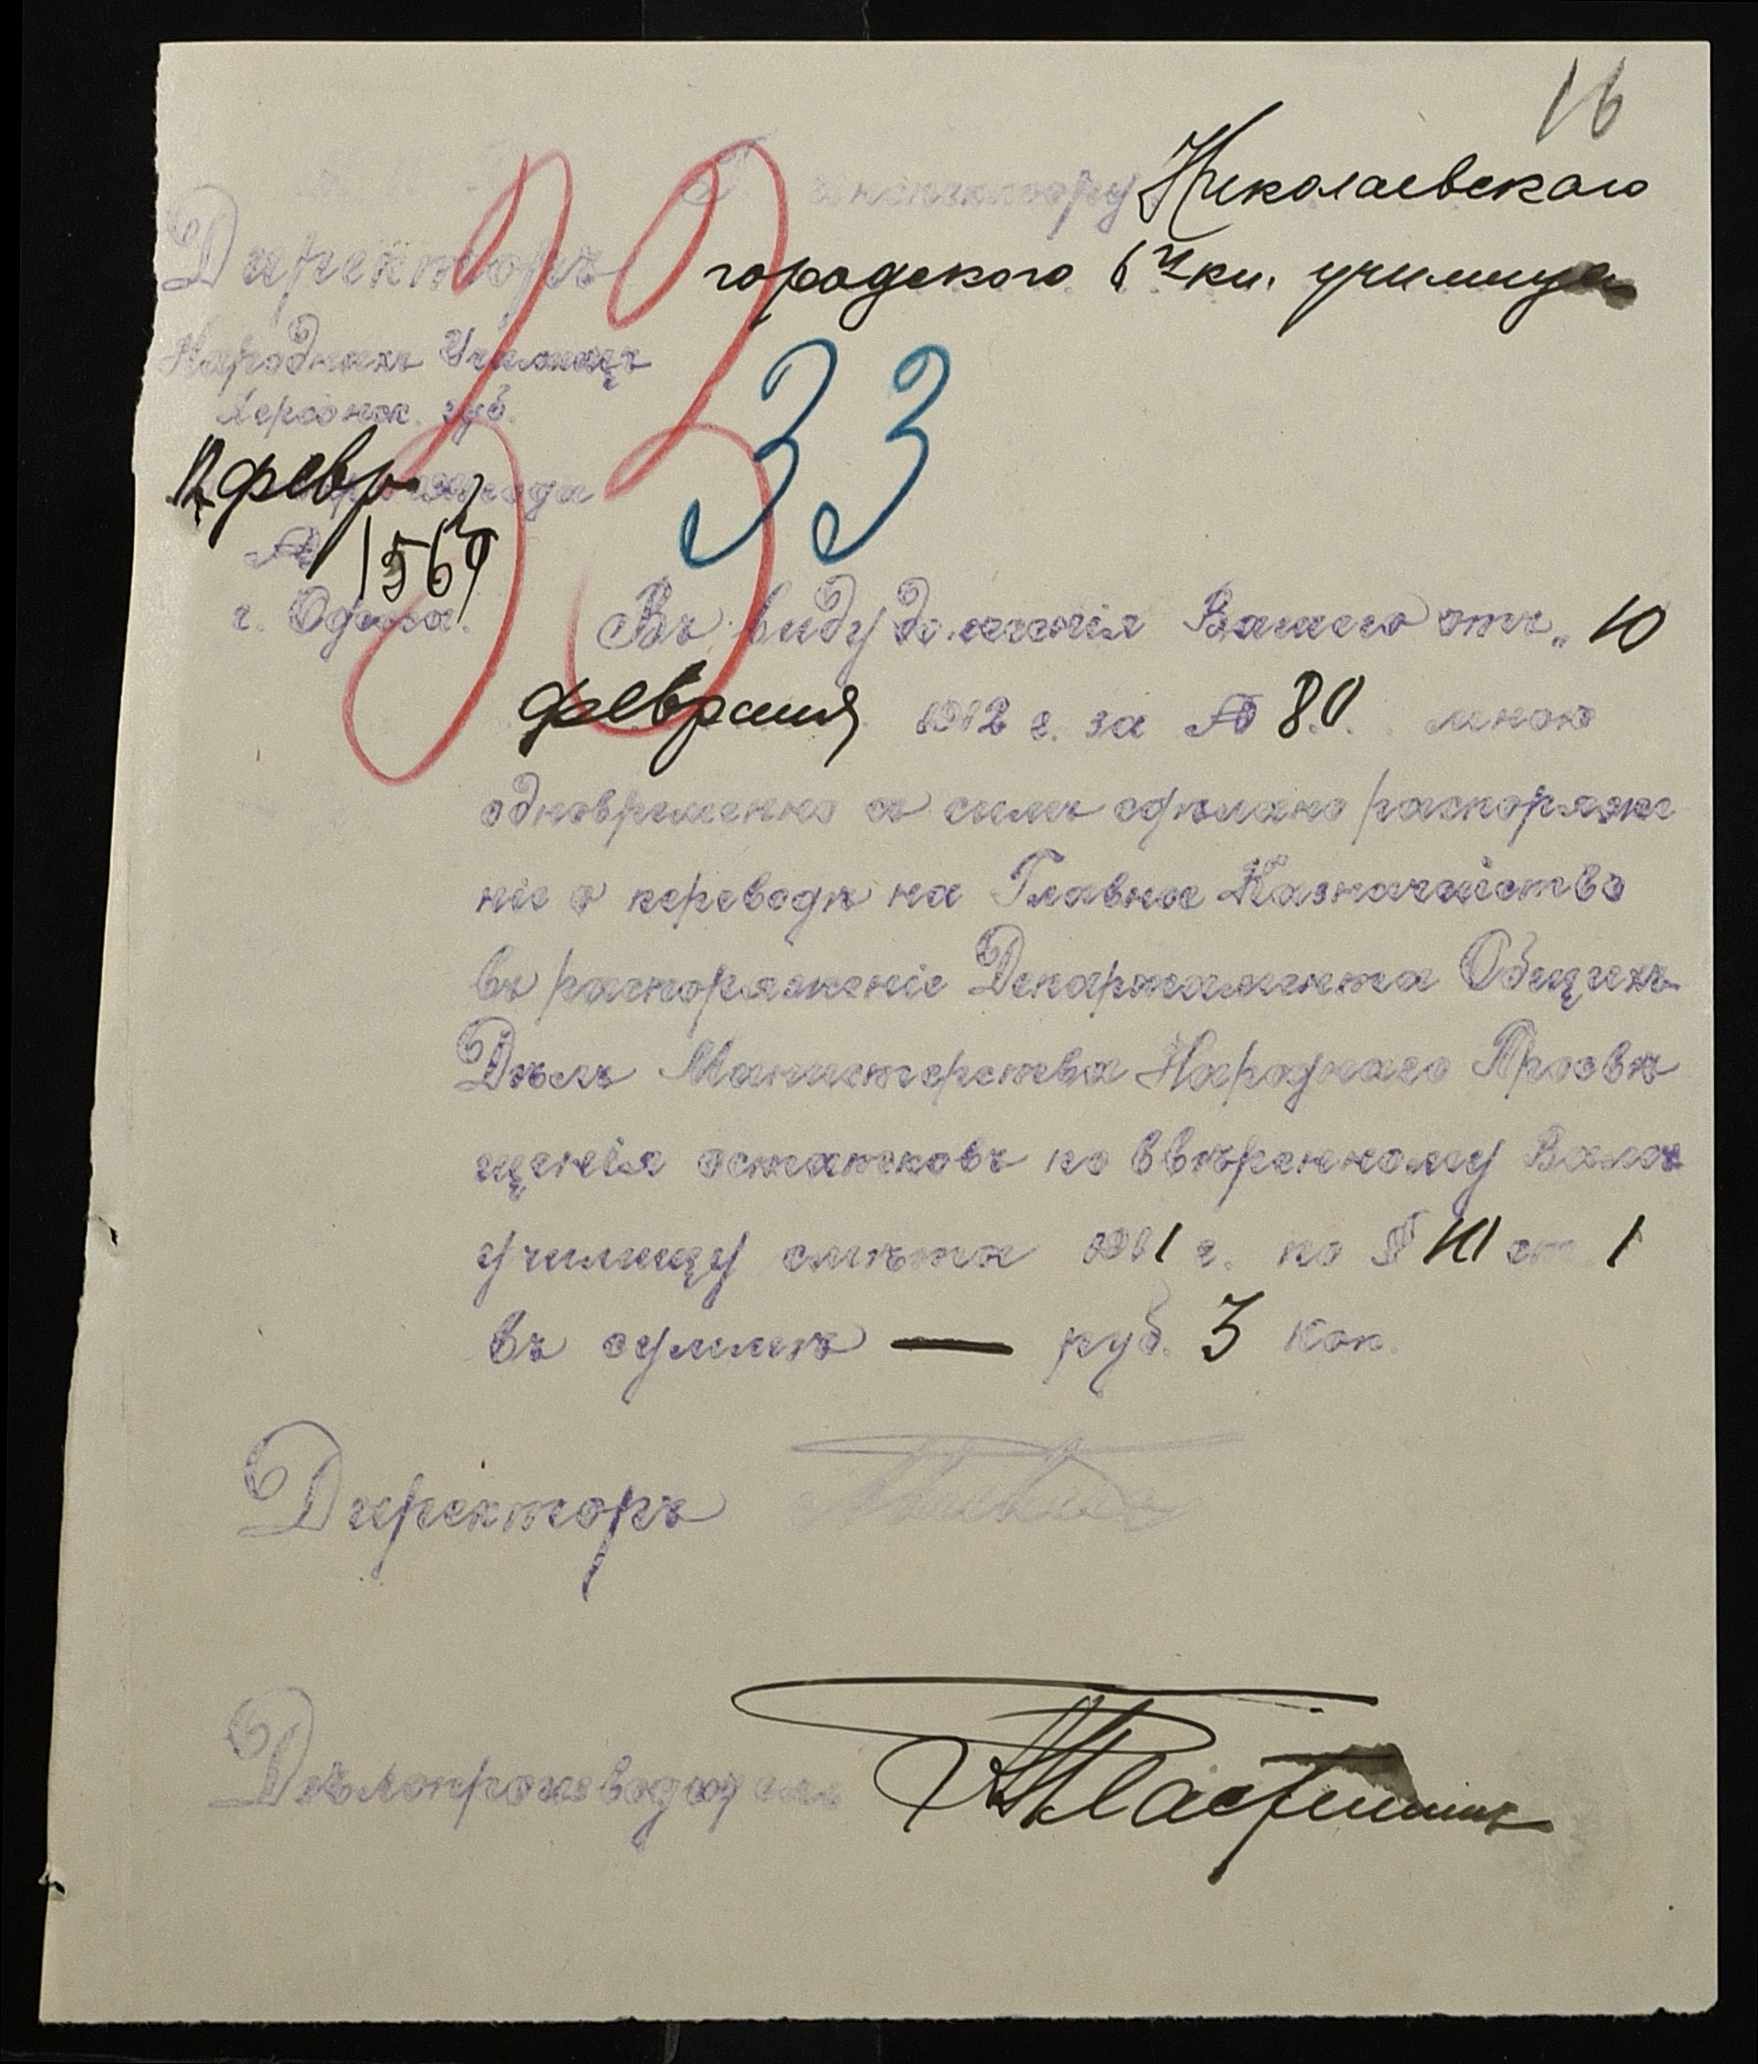 16
Инспектору Николаевскаго
городского 6ти кл. училища
Директоръ
Народныхъ Училищъ
Херсонск. губ.
12 февр. года
№ 1569
г. Одесса.
33
33
Въ виду донесенія Вашего отъ „10
февраля 1912 г. за № 80. мною
одновременно съ симъ сдѣлано распоряже
ніе о переводѣ на Главное Казначейство
въ распоряженіе Департамента Общихъ
Дѣлъ Министерства Народнаго Просвѣ
щенія остатковъ по ввѣренному Вамъ
училищу смѣты 1911 г. по § 10 ст 1
въ суммѣ — руб. 3 коп.
Директоръ
Дѣлопроизводитель